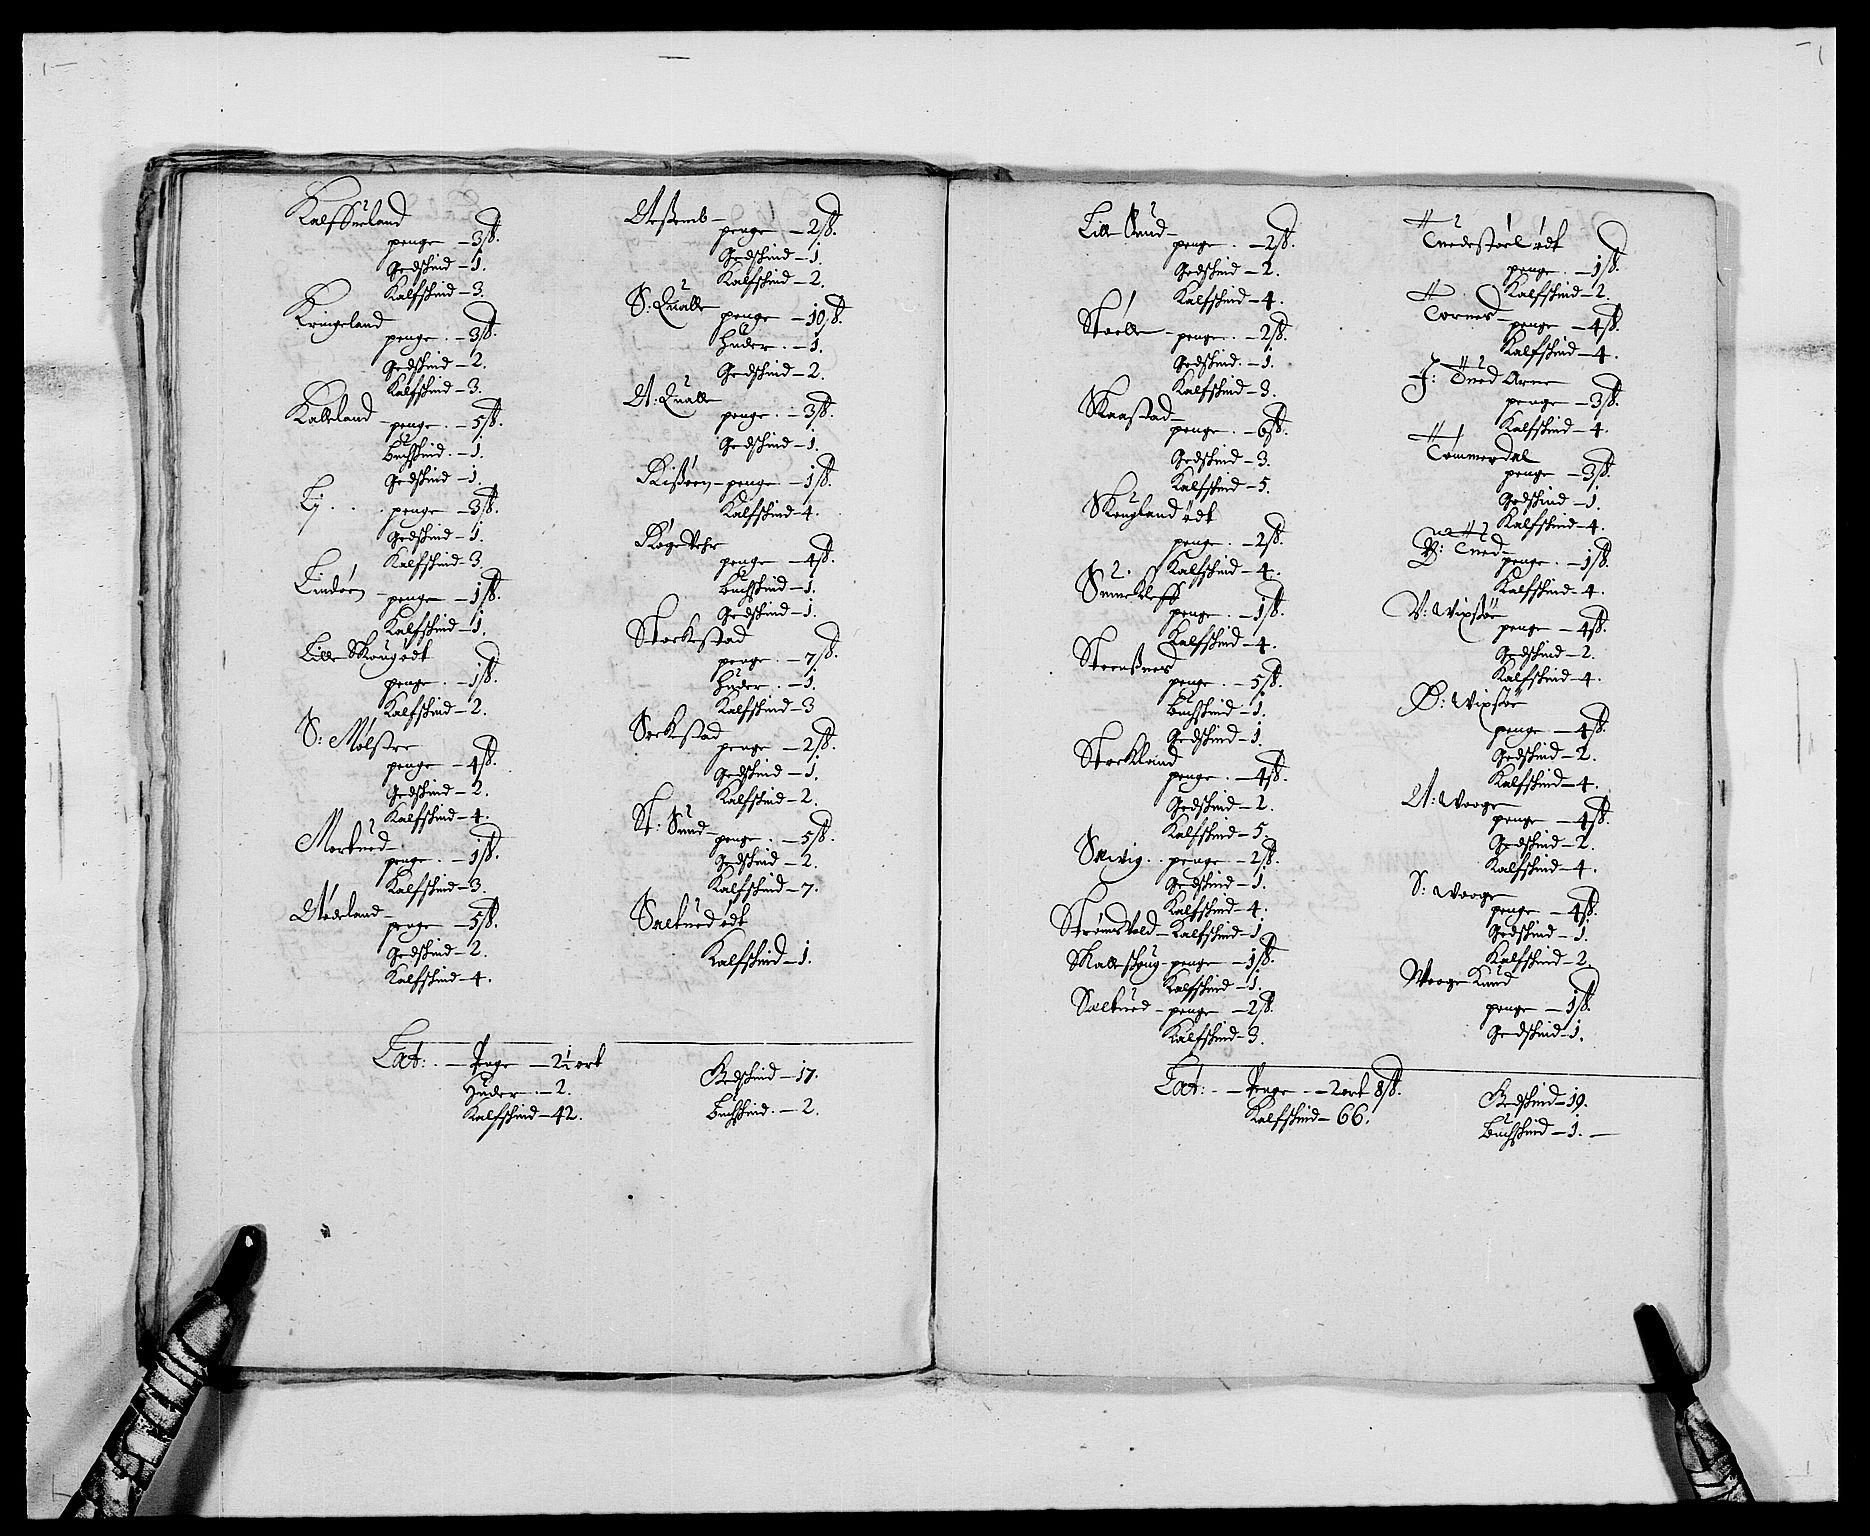 Kalffueland
penge – 3 ß.
Gedschind – 1.
Kalfschind – 3.
Kringeland
penge . – 3 ß.
Gedschind – 2.
Kalfschind – 3.
Kalleland – penge . – 5 ß.
Buchschind . – 1.
Gedschind – 1.
Lj . . . penge – 3 ß.
Gedschind – 1.
Kalfschind – 3.
Lindøen – penge – 1 ß.
Kalfschind – 1.
Lille Skoug ødt
penge . – 1 ß.
Kalfschind – 2.
S: Mølstre
penge – 4 ß.
Gedschind – 2.
Kalfschind – 4.
Morkued –
penge . – 1 ß.
Kalfschind – 3.
Nødeland –
penge – 5 ß.
Gedschind – 2.
Kalfschind – 4.
penge – 2 ß.
Gedschind – 1.
Kalfschind – 2.
S: Qualle penge – 10 ß.
Huder . – 1.
Gedschind – 2.
N: Qualle
penge . – 3 ß.
Gedschind – 1.
Rißøen – penge – 1 ß.
Kalfschind – 4.
penge – 4 ß.
Buchschind – 1.
Gedschind – 1.
Storkestad
penge . – 7 ß.
Huder . – 1.
Kalfschind – 3
Sorkestad
penge – 2 ß.
Gedschind – 1.
Kalfschind – 2.
St: Sund – penge . – 5 ß.
Gedschind – 2.
Kalfschind – 7.
Saltued ødt
Kalfschind – 1.
Lat: . – Penge – 2½ ort
Huder . – 2.
Kalfschind – 42.
Gedschind – 17.
Buchschind . – 2.
Lille Sund –
penge . – 2 ß.
Gedschind – 2.
Kalfschind – 4.
Støelle – penge . – 2 ß.
Gedschind . – 1.
Kalfschind – 3.
Skaastad –
penge . – 6 ß.
Gedschind – 3.
Kalfschind – 5.
Skougland ødt
penge . – 2 ß.
Kalfschind – 4.
penge . – 1 ß.
Kalfschind – 4.
Steensnes
penge . – 5 ß.
Buchschind – 1.
Gedschind – 1.
Storkleind
penge . – 4 ß.
Gedschind – 2.
Kalfschind – 5.
penge – 2 ß.
Gedschind – 1.
Kalfschind – 4.
Strømsvold – Kalfschind – 1.
Skalleschoug – penge – 1 ß.
Kalfschind – 1.
Saltued – penge – 2 ß.
Kalfschind – 3.
Tuedestøel ødt
penge . – 1 ß.
Kalfschind – 2.
Tornes –
penge – 4 ß.
Kalfschind – 4.
penge – 3 ß.
Kalfschind – 4.
Tømmerdal
penge – 3 ß.
Gedschind – 1.
Kalfschind – 4.
penge . – 1 ß.
Kalfschind – 4.
penge – 4 ß.
Gedschind – 2.
Kalfschind – 4.
penge – 4 ß.
Gedschind – 2.
Kalfschind – 4.
N: Wooge
penge – 4 ß.
Gedschind – 2.
Kalfschind – 4.
S: Wooge
penge – 4 ß.
Gedschind – 1.
Kalfschind – 2.
penge – 1 ß.
Gedschind – 1.
Lat: . – Penge . – 2 ort 8 ß.
Kalfschind – 66.
Gedschind – 19.
Buchschind – 1. –